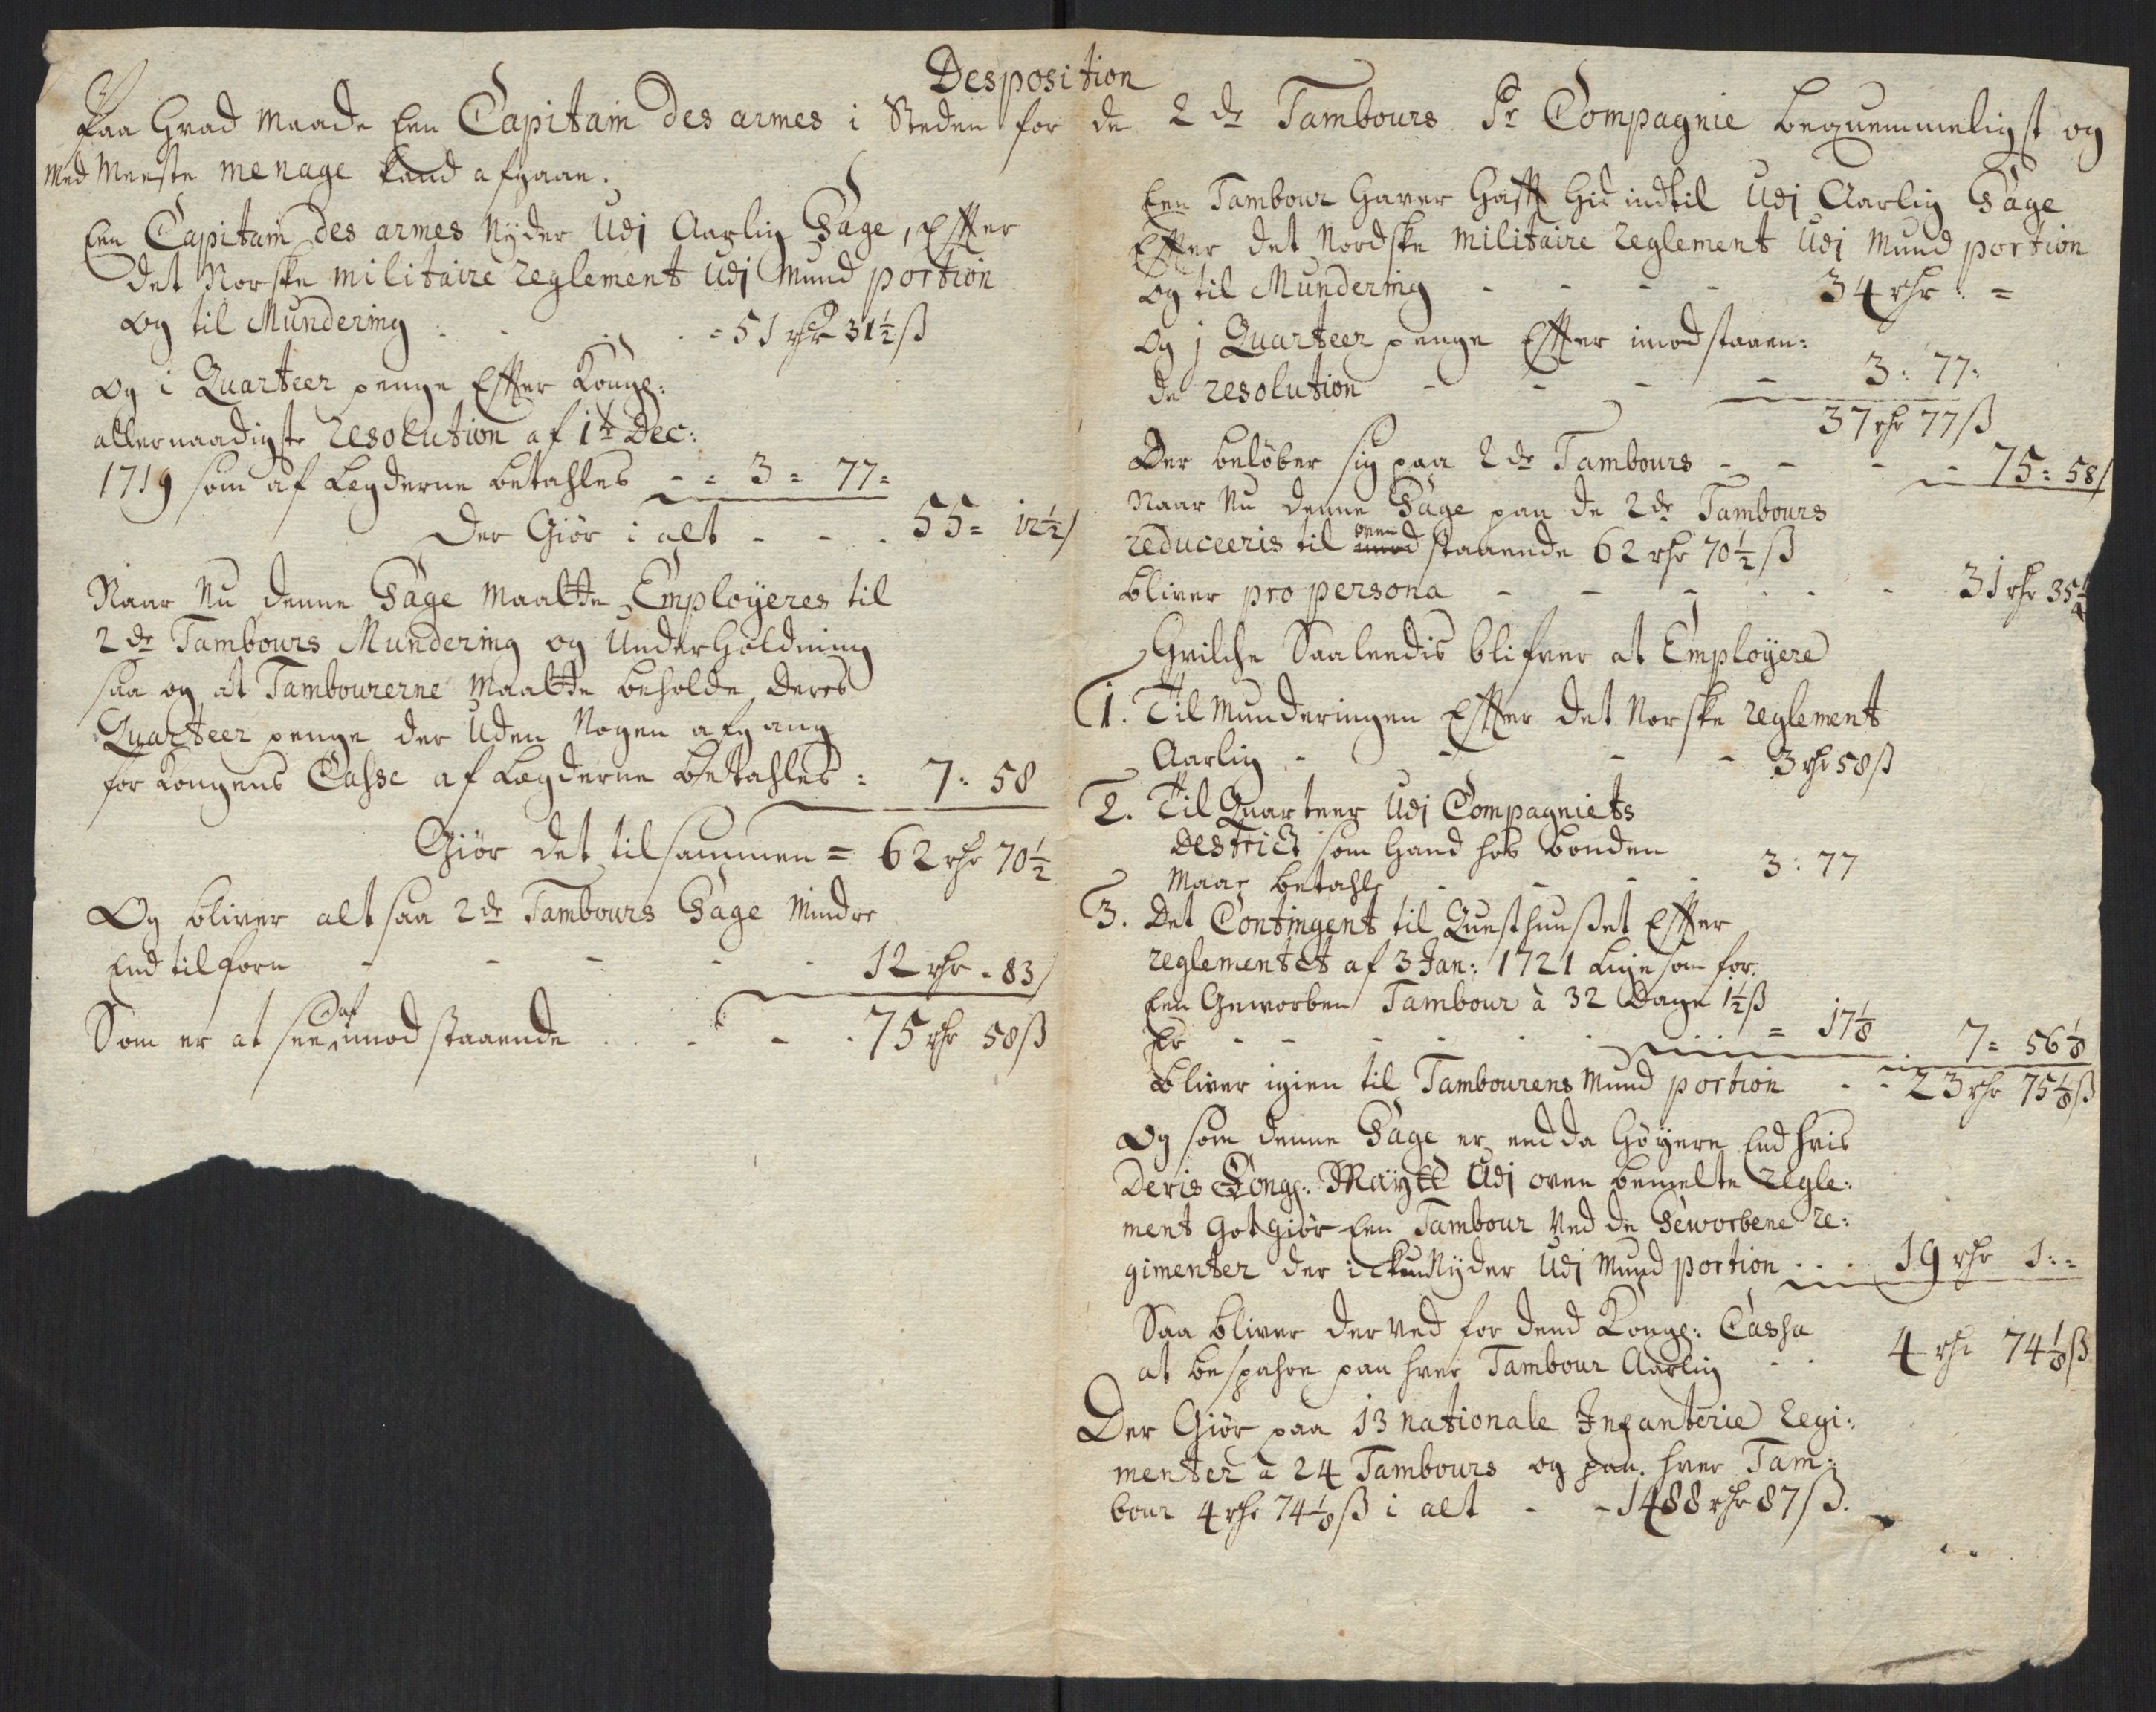 Desposition
Paa Hvad Maade Een Capitain des armes i Steden for de 2de Tambours Pr Compagnie beqvemmeligst og
Med Meeste menage kand afgaae.
Een Capitain des armes Nyder Udj Aarlig Gage, Effter
det Norske militaire reglement Udj Mund portion
Og til Mundering - - - = 51 rhr 31½ ß
Og i Quarteer penge Effter Konge:
allernaadigste Resolution af 1te Dec:
1719 som af Legderne betahles - = 3 = 77 =
Der Giör i alt - - - 55 = 12½ ß
Naar Nu denne Gage Maatte Employeres til
2de Tambours Mundering og Underholdning
saa og at Tambourerne Maatte beholde deres
Quarteer penge der Uden Nogen afgang
for Kongens Casse af Legderne betahles: 7: 58
Giör det tilsammen = 62 rhr 70½
Og bliver altsaa 2de Tambours Gage Mindre
End tilforn - - - - 12 rhr - 83 ß
Som er at see af imodstaaende - - - 75 rhr 58 ß
Een Tambour Haver Hafft Hid indtil Udj Aarlig Gage
Effter det Nordske militaire reglement Udj Mund portion
Og til Mundering - - - - 34 rhr : =
Og j Quarteer penge Effter imodstaaen:
de resolution - - - - 3: 77:
37 rhr 77 ß
Der belöber sig paa 2de Tambours - - - - 75 = 58 ß
Naar Nu denne Gage paa de 2de Tambours
reduceeris til oven staaende 62 rhr 70½ ß
bliver pro persona - - - - - - 31 rhr 35¼
Hvilche Saaleedis blifver at Employere
1. Til Munderingen Effter det Norske reglement
Aarlig - - - - 3 rhr 58 ß
2. Til Quarteer Udj Compagniets
District som Hand hos bonden
Maae betahle - - - - 3: 77
3. Det Contingent til Questhuuset Effter
reglementet af 3 Jan: 1721 Lige som for
Een Geworben Tambour à 32 Dage 1½ ß
Er - - - - - - = 17⅛ 7 = 56⅛
bliver igien til Tambourens Mund portion - - 23 rhr 75⅛ ß
Og som denne Gage er endda Höyere End hvis
Deris Kongl: Maytt Udj oven bemelte regle:
ment Godtgiör Een Tambour Ved de Geworbene re:
gimenter der ickun Nyder Udj Mund portion - - - 19 rhr 1: =
Saa bliver der ved for dend Kongl: Cassa
at bespahre paa hver Tambour Aarlig - - 4 rhr 74⅛ ß
Der Giör paa 13 nationale Infanterie Regi:
menter à 24 Tambours og paa hver Tam:
bour 4 rhr 74⅛ ß i alt - - 1488 rhr 87 ß.